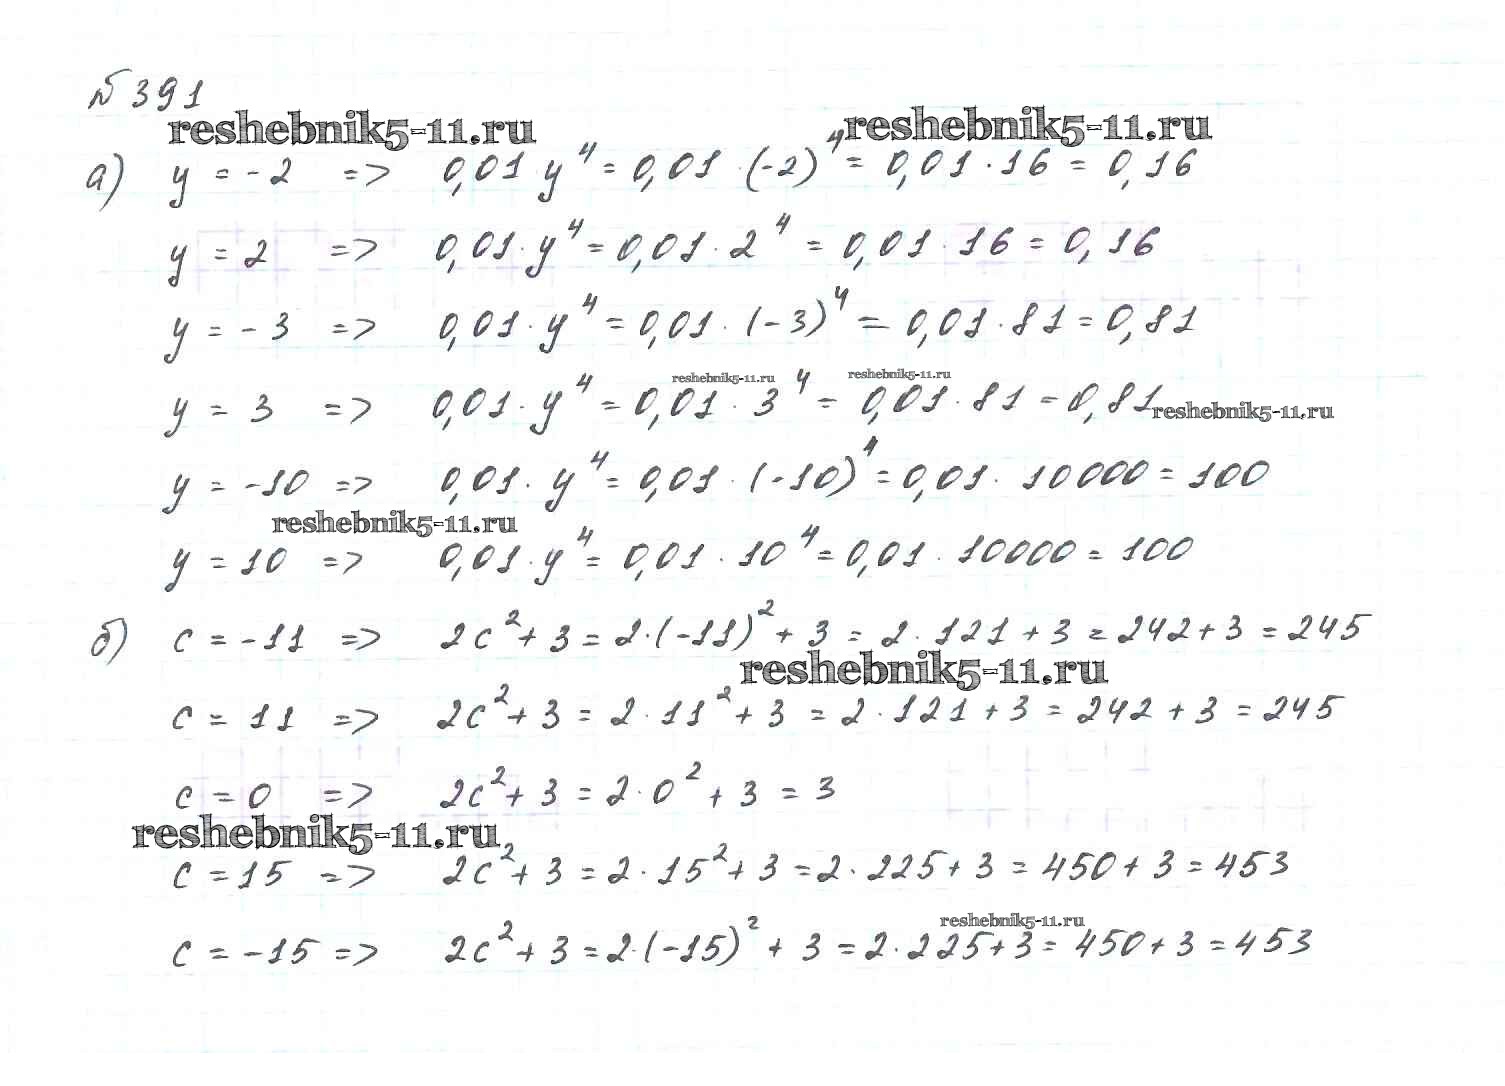 № 391
reshebnik5-11.ru reshebnik5-11.ru
а) y = -2 => 0,01 y⁴ = 0,01 · (-2)⁴ = 0,01 · 16 = 0,16
y = 2 => 0,01 · y⁴ = 0,01 · 2⁴ = 0,01 · 16 = 0,16
y = -3 => 0,01 · y⁴ = 0,01 · (-3)⁴ = 0,01 · 81 = 0,81
reshebnik5-11.ru reshebnik5-11.ru
y = 3 => 0,01 · y⁴ = 0,01 · 3⁴ = 0,01 · 81 = 0,81 reshebnik5-11.ru
y = -10 => 0,01 · y⁴ = 0,01 · (-10)⁴ = 0,01 · 10000 = 100
reshebnik5-11.ru
y = 10 => 0,01 · y⁴ = 0,01 · 10⁴ = 0,01 · 10000 = 100
б) c = -11 => 2c² + 3 = 2·(-11)² + 3 = 2 · 121 + 3 = 242 + 3 = 245
reshebnik5-11.ru
c = 11 => 2c² + 3 = 2 · 11² + 3 = 2 · 121 + 3 = 242 + 3 = 245
c = 0 => 2c² + 3 = 2 · 0² + 3 = 3
reshebnik5-11.ru
c = 15 => 2c² + 3 = 2 · 15² + 3 = 2 · 225 + 3 = 450 + 3 = 453
reshebnik5-11.ru
c = -15 => 2c² + 3 = 2·(-15)² + 3 = 2 · 225 + 3 = 450 + 3 = 453